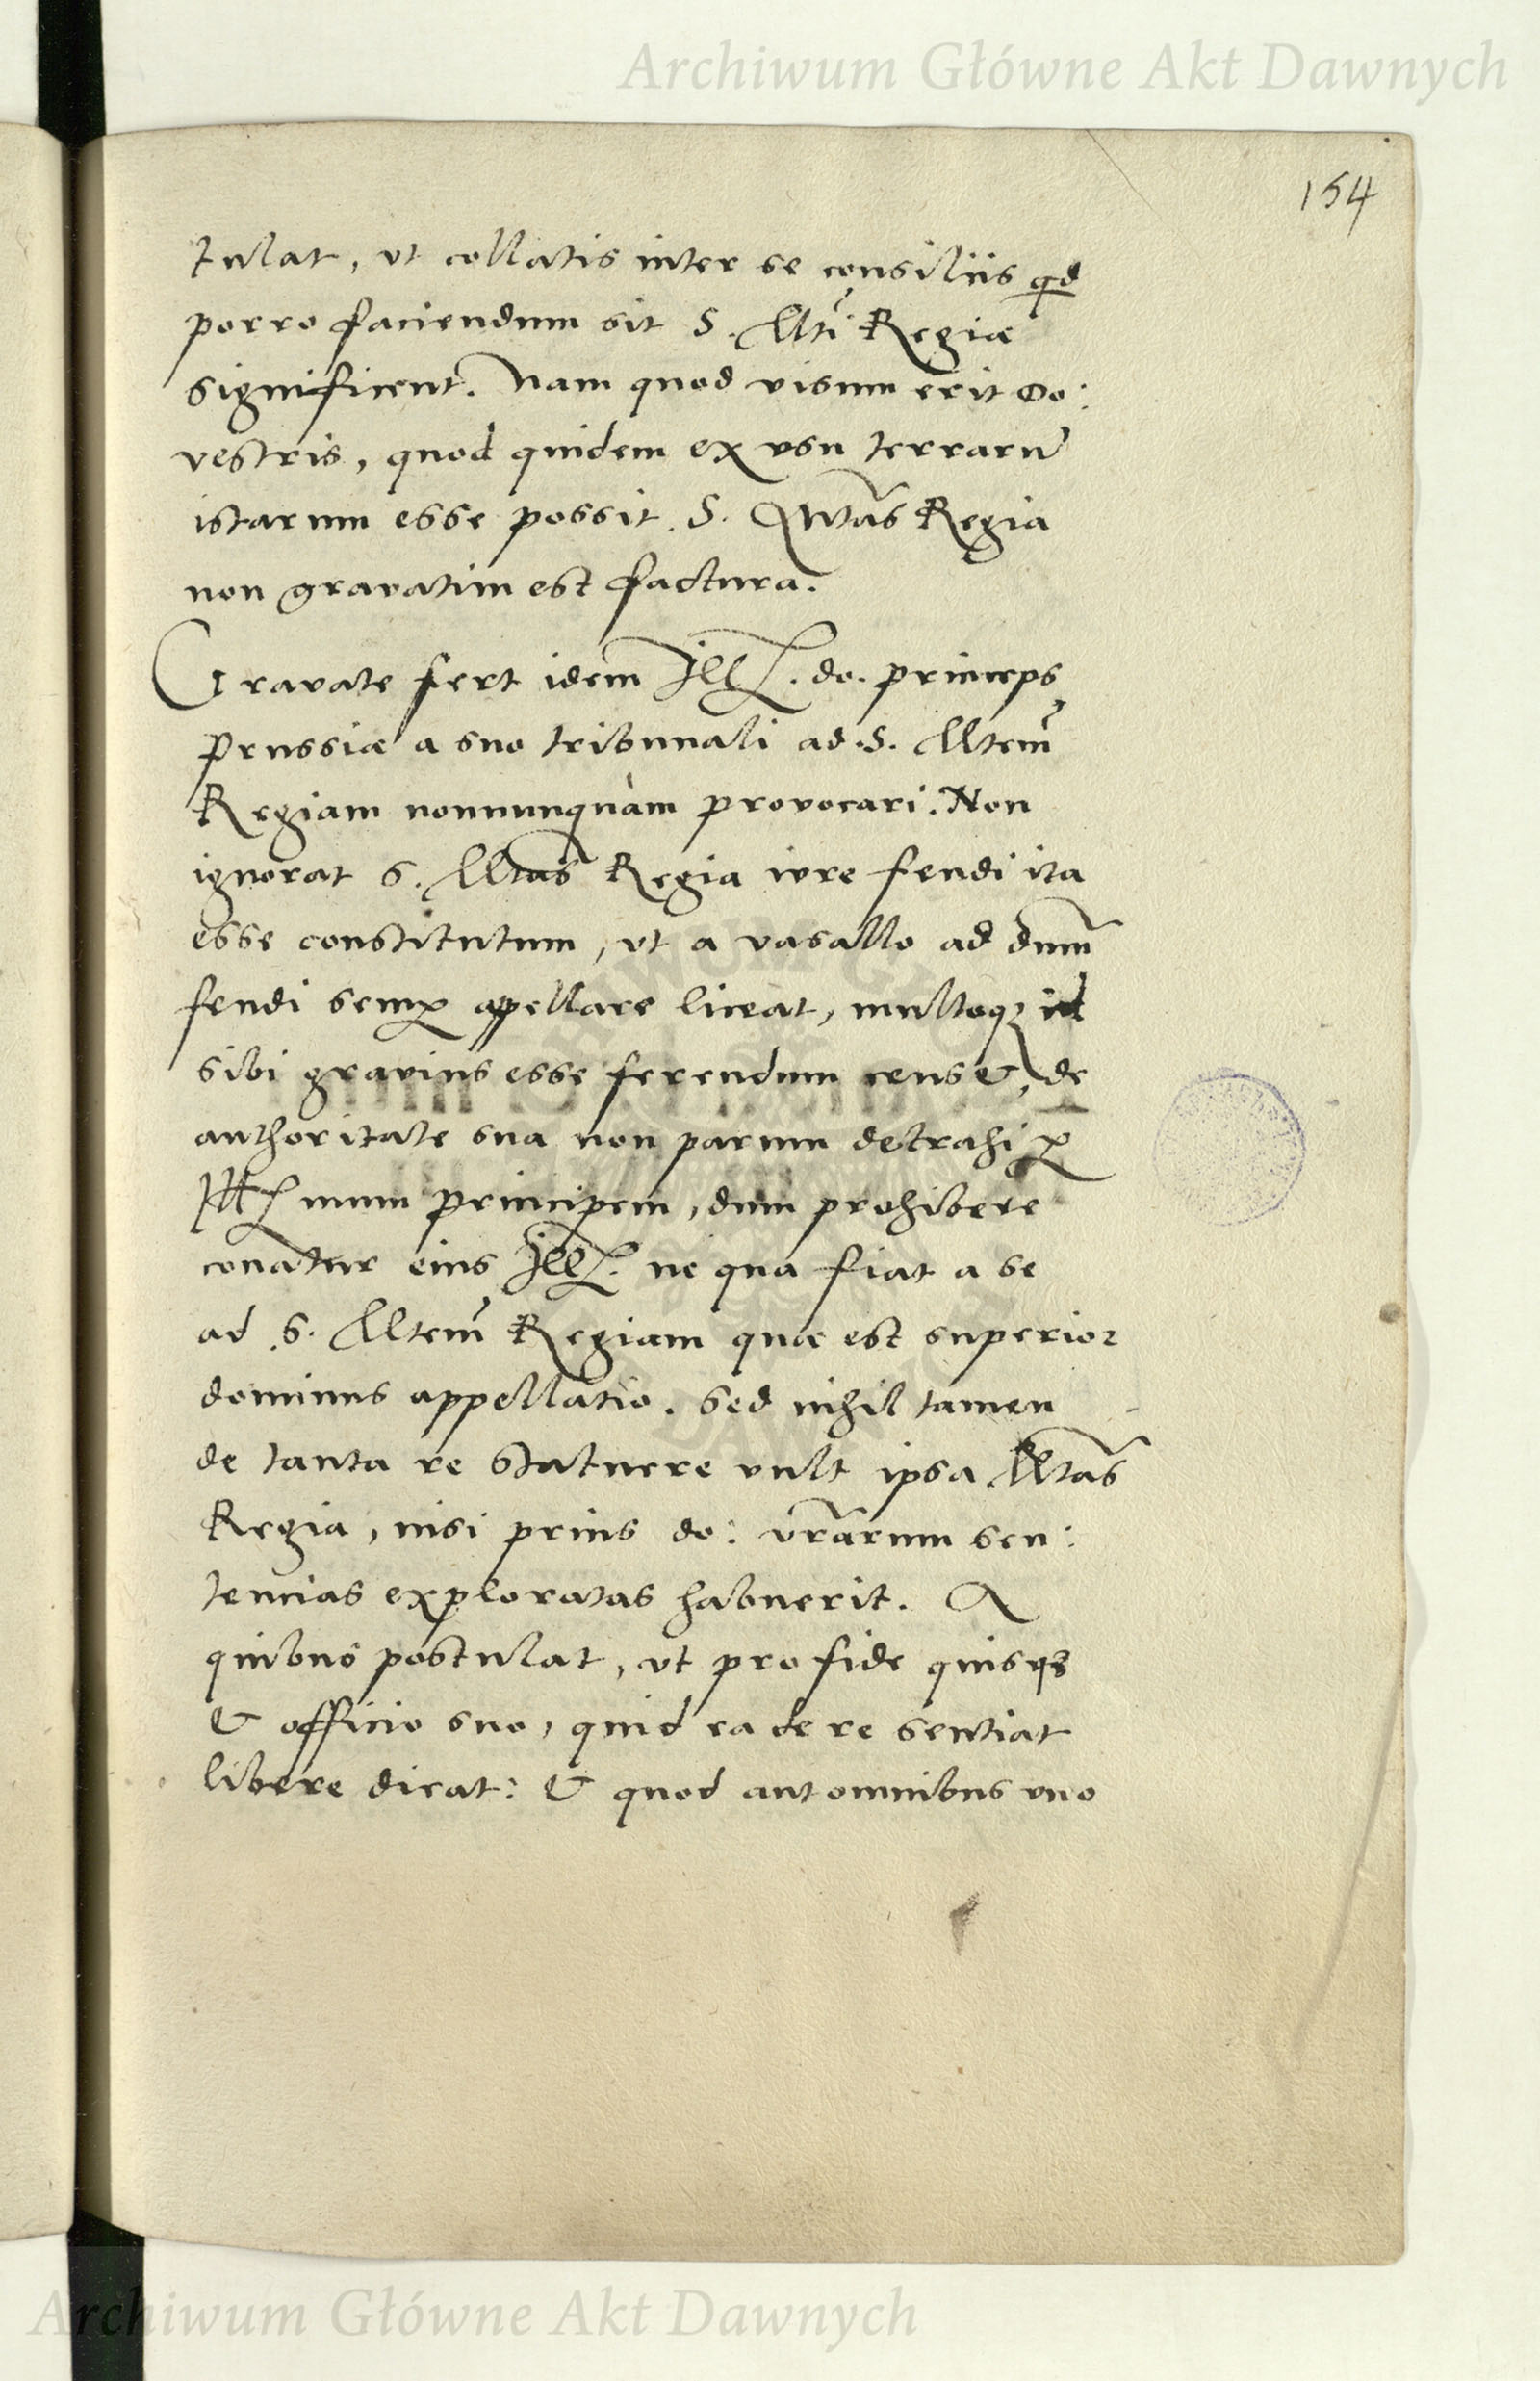 Archiwum Główne Akt Dawnych
154
tulat, ut collatis inter se consiliis qd
porro faciendum sit S. Mti Regiæ
significent. Nam quod visum erit Do:
vestris, quod quidem ex usu terrarū
istarum esse possit. S. Mtas Regia
non gravatim est factura.
Gravate fert idem Ill. do. princeps
Prussiæ a suo tribunali ad S. Mtem
Regiam nonnunquàm provocari. Non
ignorat S. Mtas Regia iure feudi ita
esse constitutum, ut a vasallo ad dnum
feudi semp appellare liceat, multoq; id
sibi gravius esse ferendum censet, de
authoritate sua non parum detrahi p
Ill mum principem, dum prohibere
conatur eius Ill. ne qua fiat a se
ad S. Mtem Regiam quæ est superior
dominus appellatio. Sed nihil tamen
de tanta re statuere vult ipsa Mtas
Regia, nisi prius do: vrarum sen:
tencias exploratas habuerit. A
quibus postulat, ut pro fide quisq3
& officio suo, quid ea de re sentiat
libere dicat: & quod aut omnibus uno
Archiwum Główne Akt Dawnych